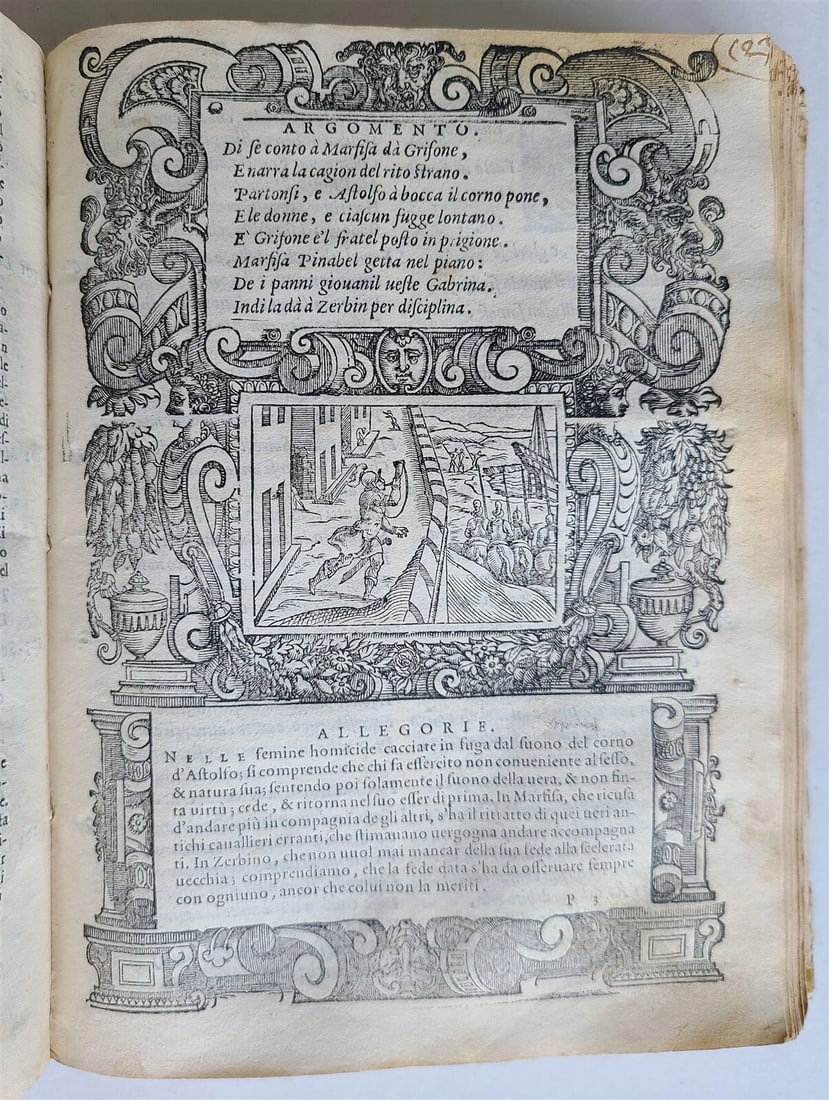 ARGOMENTO.
Di se conto à Marfisa dà Grifone,
E narra la cagion del rito strano.
Partonsi, e Astolfo à bocca il corno pone,
E le donne, e ciascun fugge lontano.
E' Grifone e'l fratel posto in prigione.
Marfisa Pinabel getta nel piano:
De i panni giouanil ueste Gabrina.
Indi la dà à Zerbin per disciplina.
ALLEGORIE.
NELLE femine homicide cacciate in fuga dal suono del corno
d'Astolfo; si comprende che chi fa essercito non conueniente al sesso,
& natura sua; sentendo poi solamente il suono della uera, & non fin-
ta uirtù; cede, & ritorna nel suo esser di prima. In Marfisa, che ricusa
d'andare più in compagnia de gli altri, s'ha il ritratto di quei ueri an-
tichi cauallieri erranti, che stimauano uergogna andare accompagna
ti. In Zerbino, che non uuol mai mancar della sua fede alla scelerata
uecchia; comprendiamo, che la fede data s'ha da osseruare sempre
con ogniuno, ancor che colui non la meriti.
P 3